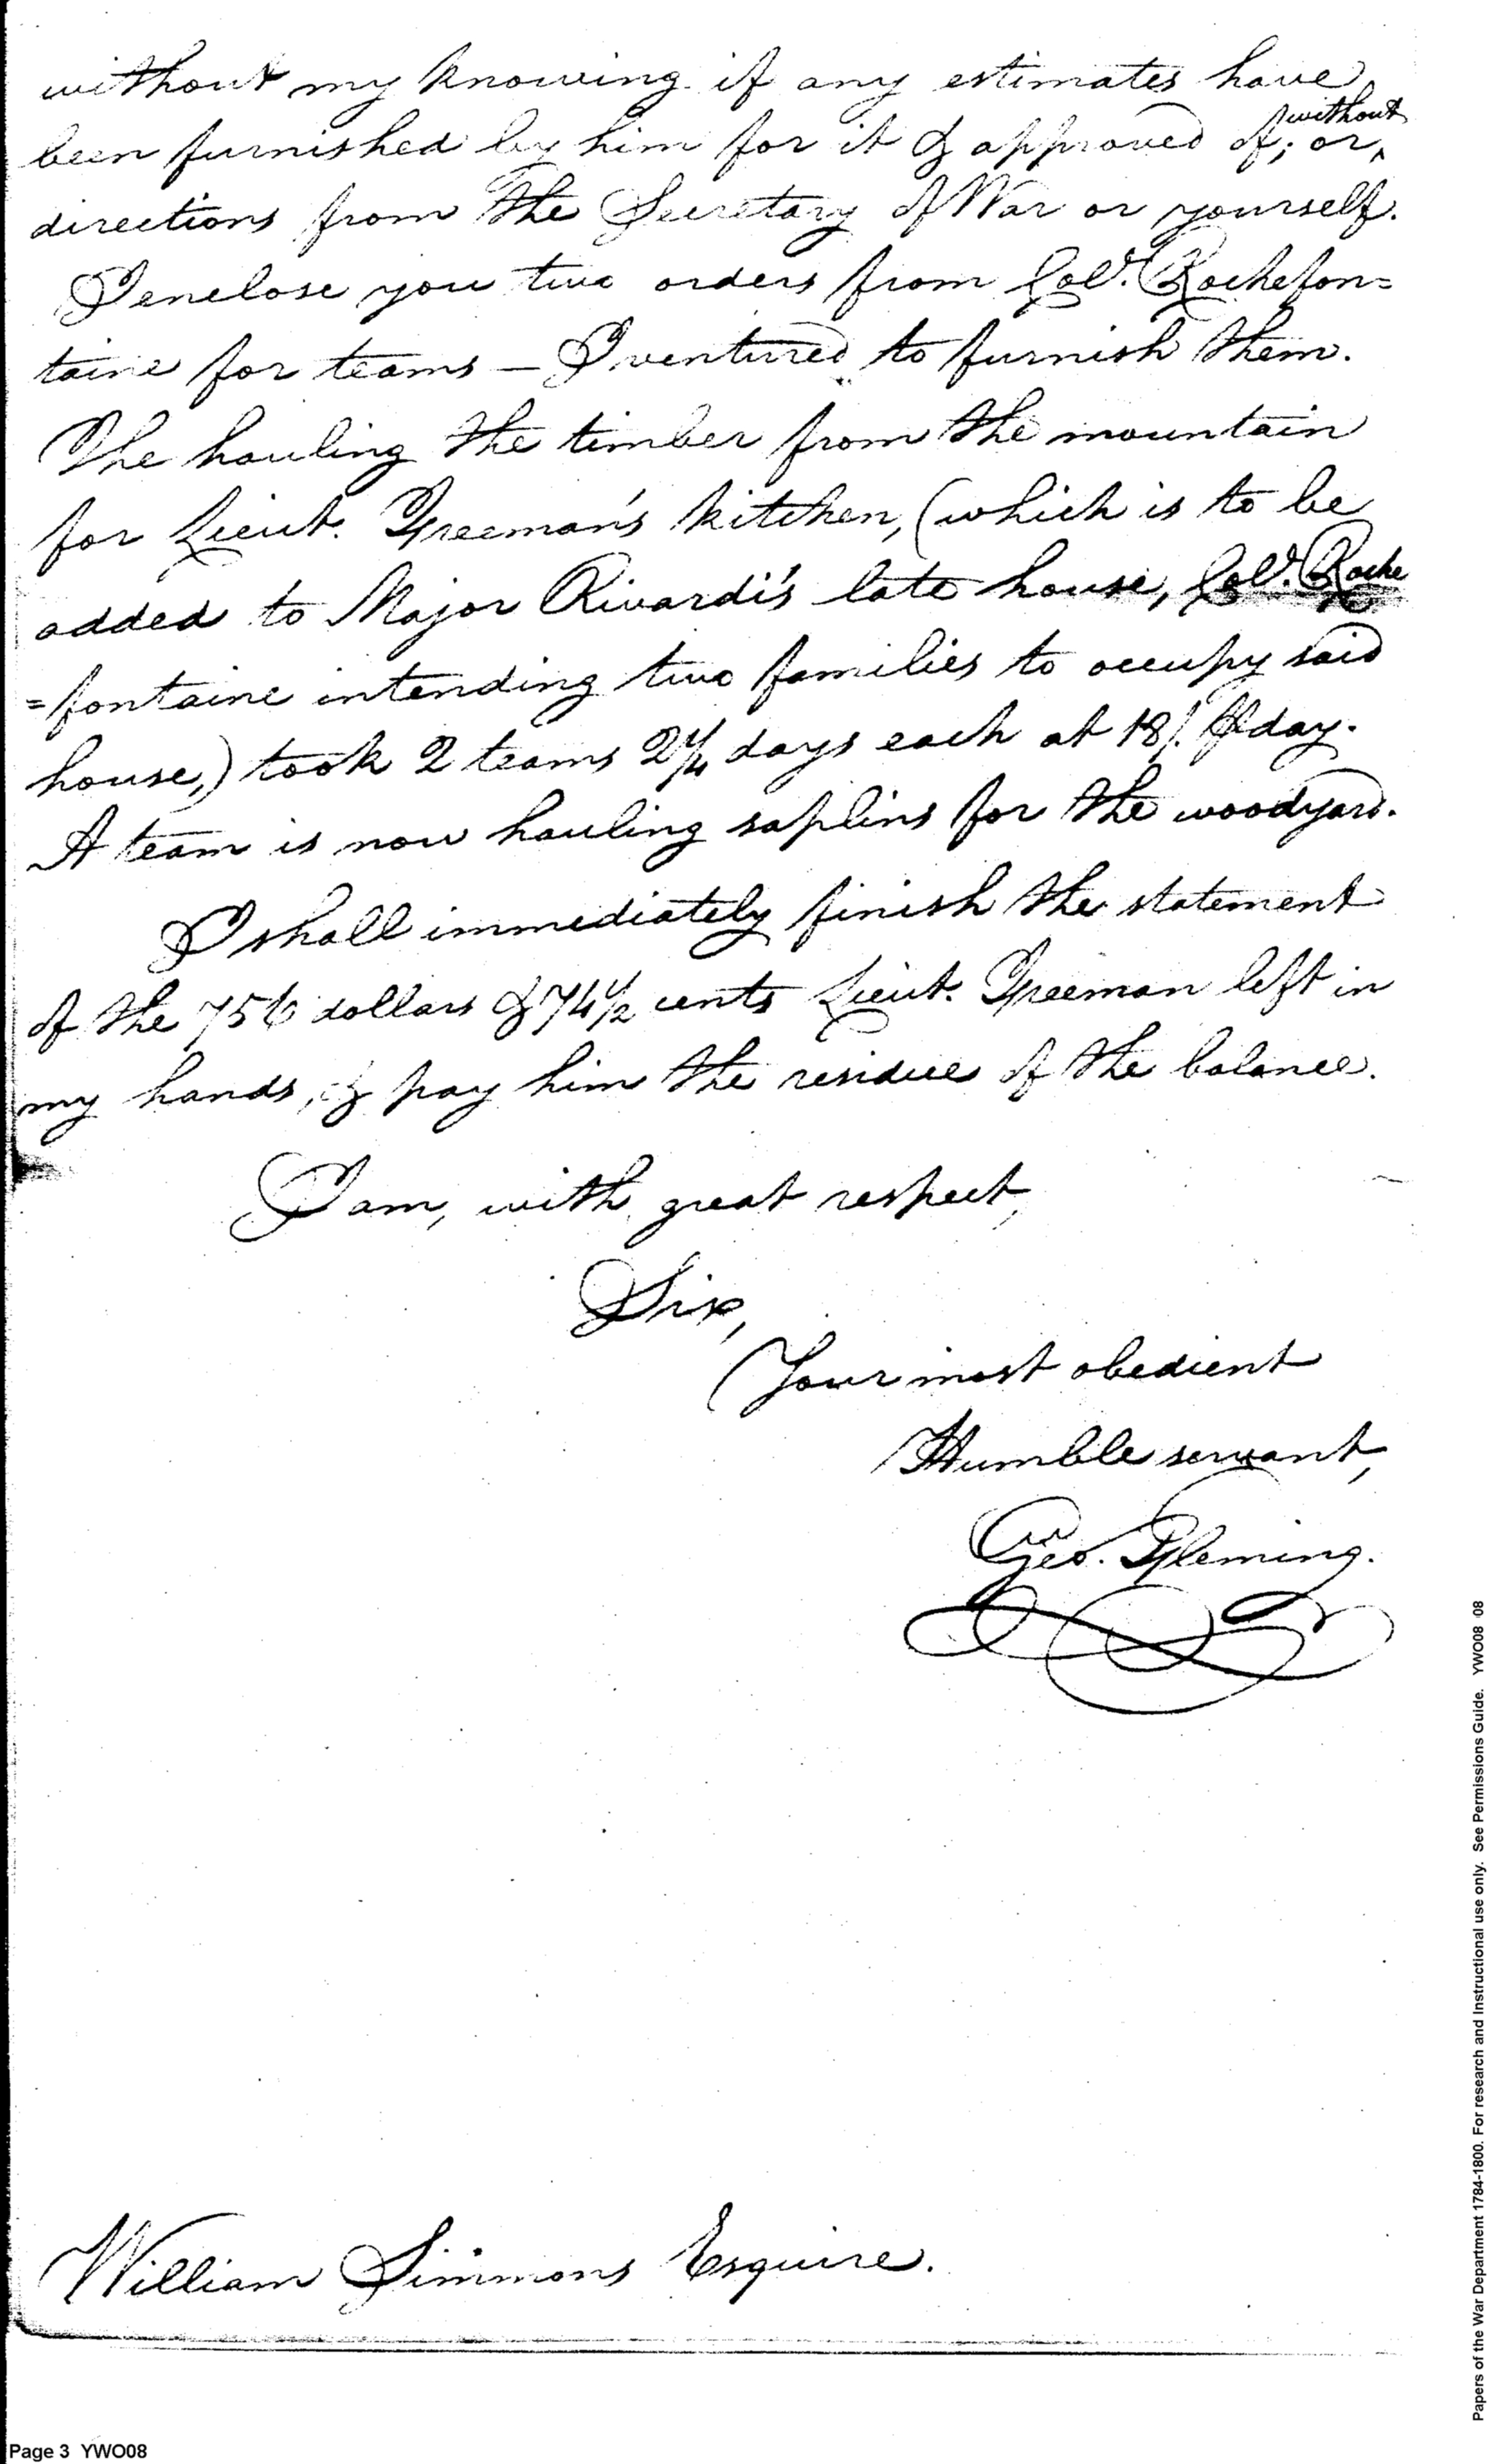 without my knowing if any estimates have
been furnished by him for it & approved of; or, without
directions from the Secretary of War or yourself.
I enclose you two orders from Colo. Rochefon=
taine for teams — I ventured to furnish them.
The hauling the timber from the mountain
for Lieut. Freeman's kitchen, (which is to be
added to Major Rivardi's late house, Colo. Roche
=fontaine intending two families to occupy said
house,) took 2 teams 2 1/4 days each at 18/. ⅌ day.
A team is now hauling saplins for the woodyard.
I shall immediately finish the statement
of the 756 dollars & 74 1/2 cents Lieut. Freeman left in
my hands, & pay him the residue of the balance.
I am, with great respect,
Sir,
Your most obedient
Humble servant,
Geo. Fleming.
William Simmons Esquire.
Page 3 YWO08
Papers of the War Department 1784-1800. For research and Instructional use only. See Permissions Guide. YWO08 08